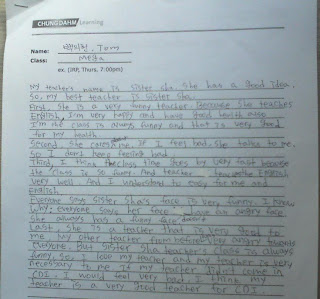 CHUNGDAHM Learning
Name: Tom
Class: Mega
ex. (JRP, Thurs, 7:00pm)
My teacher's name is sister sha. she has a good idea.
So, my best teacher is sister sha.
First, she is a very funny teacher. Because she teaches
English, I'm very happy and have good health also.
I'm the class is always funny and that is very good
for my health.
Second, she cares me. If I feel bad, she talkes to me.
So I don't have feeling bad.
Third, I think class time goes by very fast because
the class is so funny. And teacher teaches English
very well. And I understand so easy for me and
English.
Everyone says sister sha's face is very funny. I know
why; everyone says her face have an angry face
she always has a funny face doesn't
Last, she is a teacher that is very good to
me. My other teacher from before very angry towards
everyone. But sister sha teacher's class is always
funny. So, I love my teacher and my teacher is very
necessary to me. If my teacher didn't come in
CDI, I would feel very bad. I think my
teacher is a very good teacher for CDI